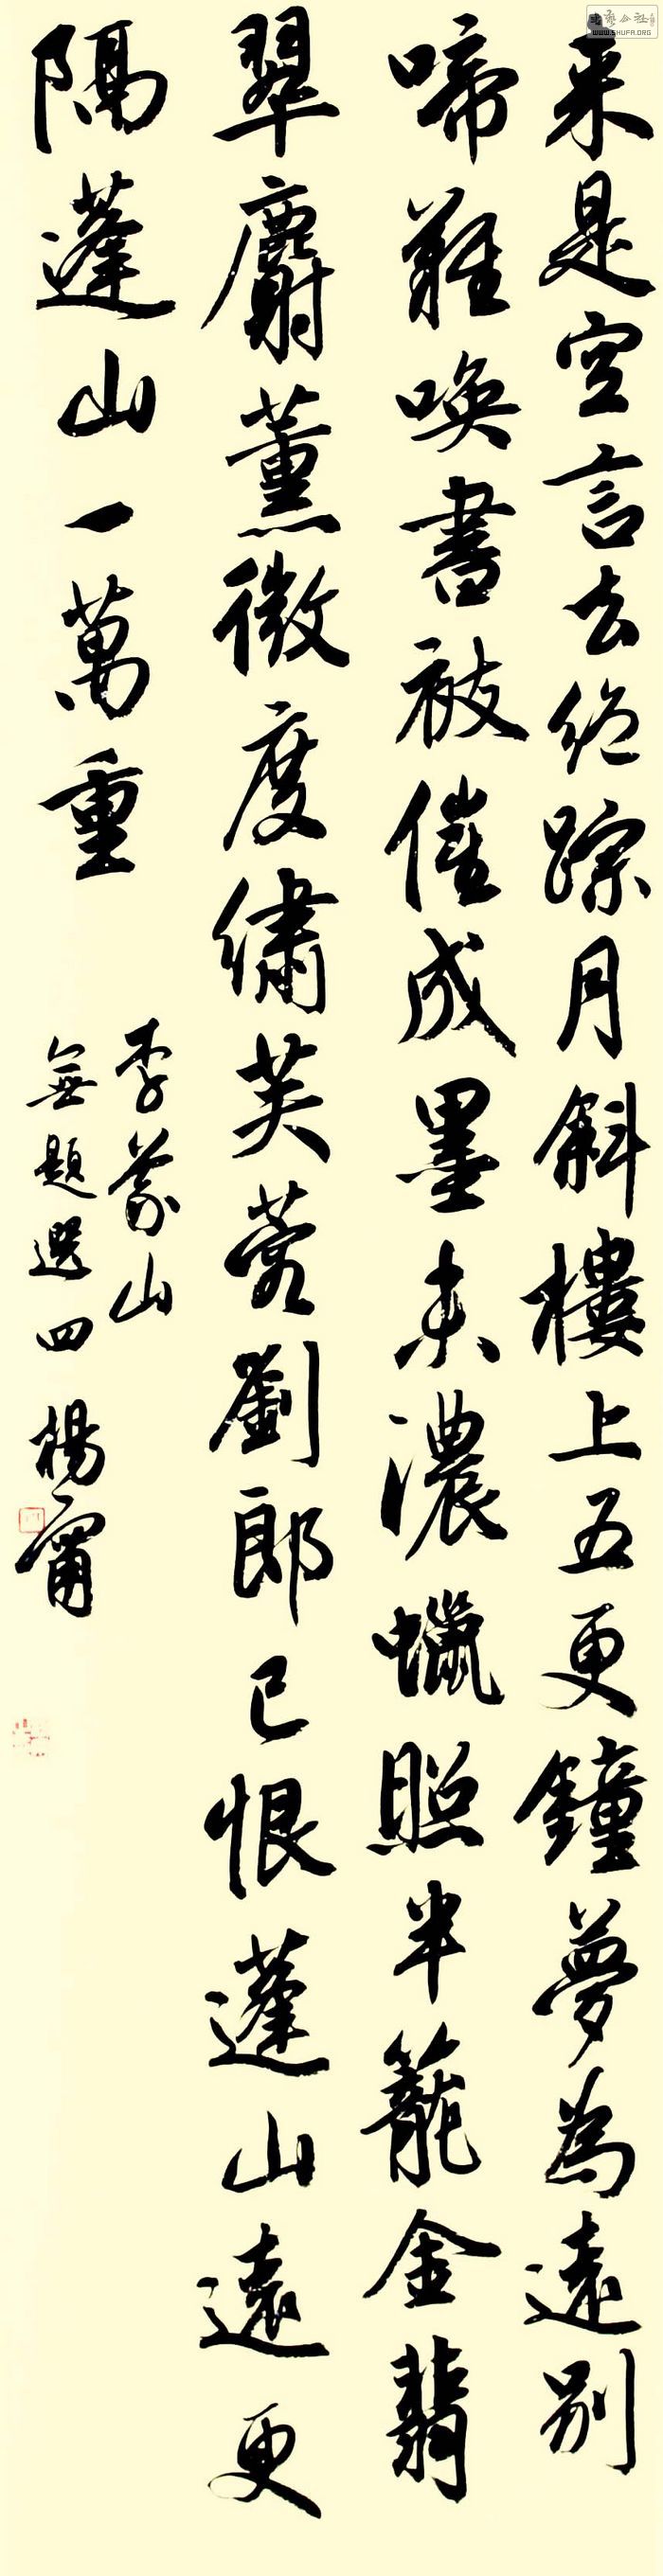 来是空言去絶踪月斜樓上五更鐘夢為遠別
啼難喚書被催成墨未濃蠟照半籠金翡
翠麝薰微度繡芙蓉劉郎已恨蓬山遠更
隔蓬山一萬重
李義山
無題選四 楊甯
WWW.SHUFA.ORG